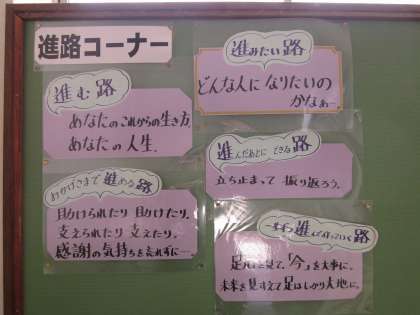 進路コーナー
進む路
あなたのこれからの生き方。
あなたの人生。
おかげさまで進める路
助けられたり 助けたり。
支えられたり 支えたり。
感謝の気持ちを忘れずに…。
進みたい路
どんな人に なりたいの
かなぁ…
進んだあとに できる路
立ち止まって 振り返ろう。
一歩ずつ進んで行っていく路
足元を見て、「今」を大事に。
未来を見すえて足はしっかり大地に。